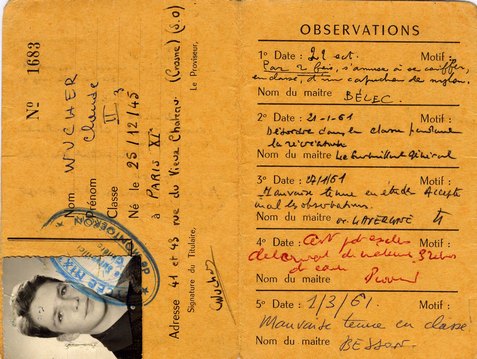 Nº 1683
Nom WUCHER
Prénom Claude
Classe II 3
Né le 25/12/45
à PARIS XI
Adresse 41 et 43 rue du Vieux Chateau (Crosne) (S.O)
Signature du Titulaire, Le Proviseur,
Wucher
OBSERVATIONS
1º Date : 22 oct. Motif :
Par 2 fois, s'amuse à se coiffer,
en classe, d'un capuchon de nylon.
Nom du maitre BÉLEC.
2º Date : 21-1-61 Motif :
Désordre dans en classe pendant
la récréation
Nom du maitre Le Surveillant Général
3º Date : 27/1/61 Motif :
Mauvaise tenue en étude Accepte
mal les observations.
Nom du maitre
4º Date : Motif :
Nom du maitre
5º Date : 1/3/61. Motif :
Mauvaise tenue en classe
Nom du maitre BESSON.